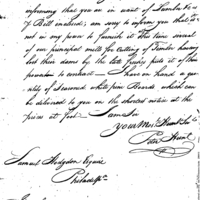 informing that you are in want of Lumber &c
Bill inclosed; am sorry to inform you that is
not in my power to furnish it The time several
of our principal mills for cutting of Lumber having
lost their dams by the late freshes puts it of their
power to contract — I have on hand a quan-
tity of seasoned white pine Boards which can
be delivered to you on the shortest notice at the
prices at foot. I am Sir
your Most Hume Sert
Samuel Hodgdon Esquire
Philadelpa